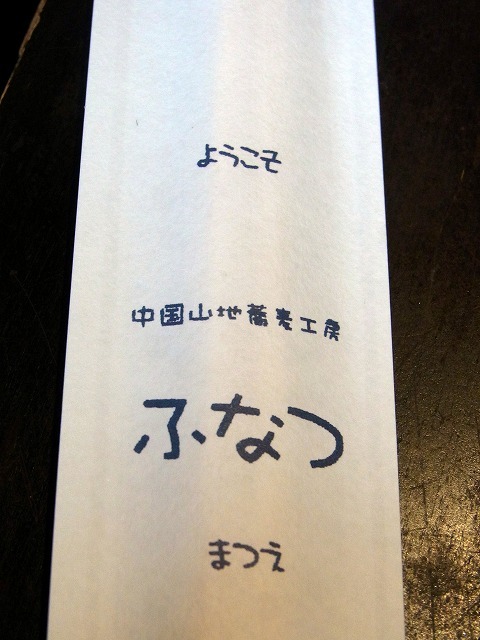 ようこそ
中国山地蕎麦工房
ふなつ
まつえ